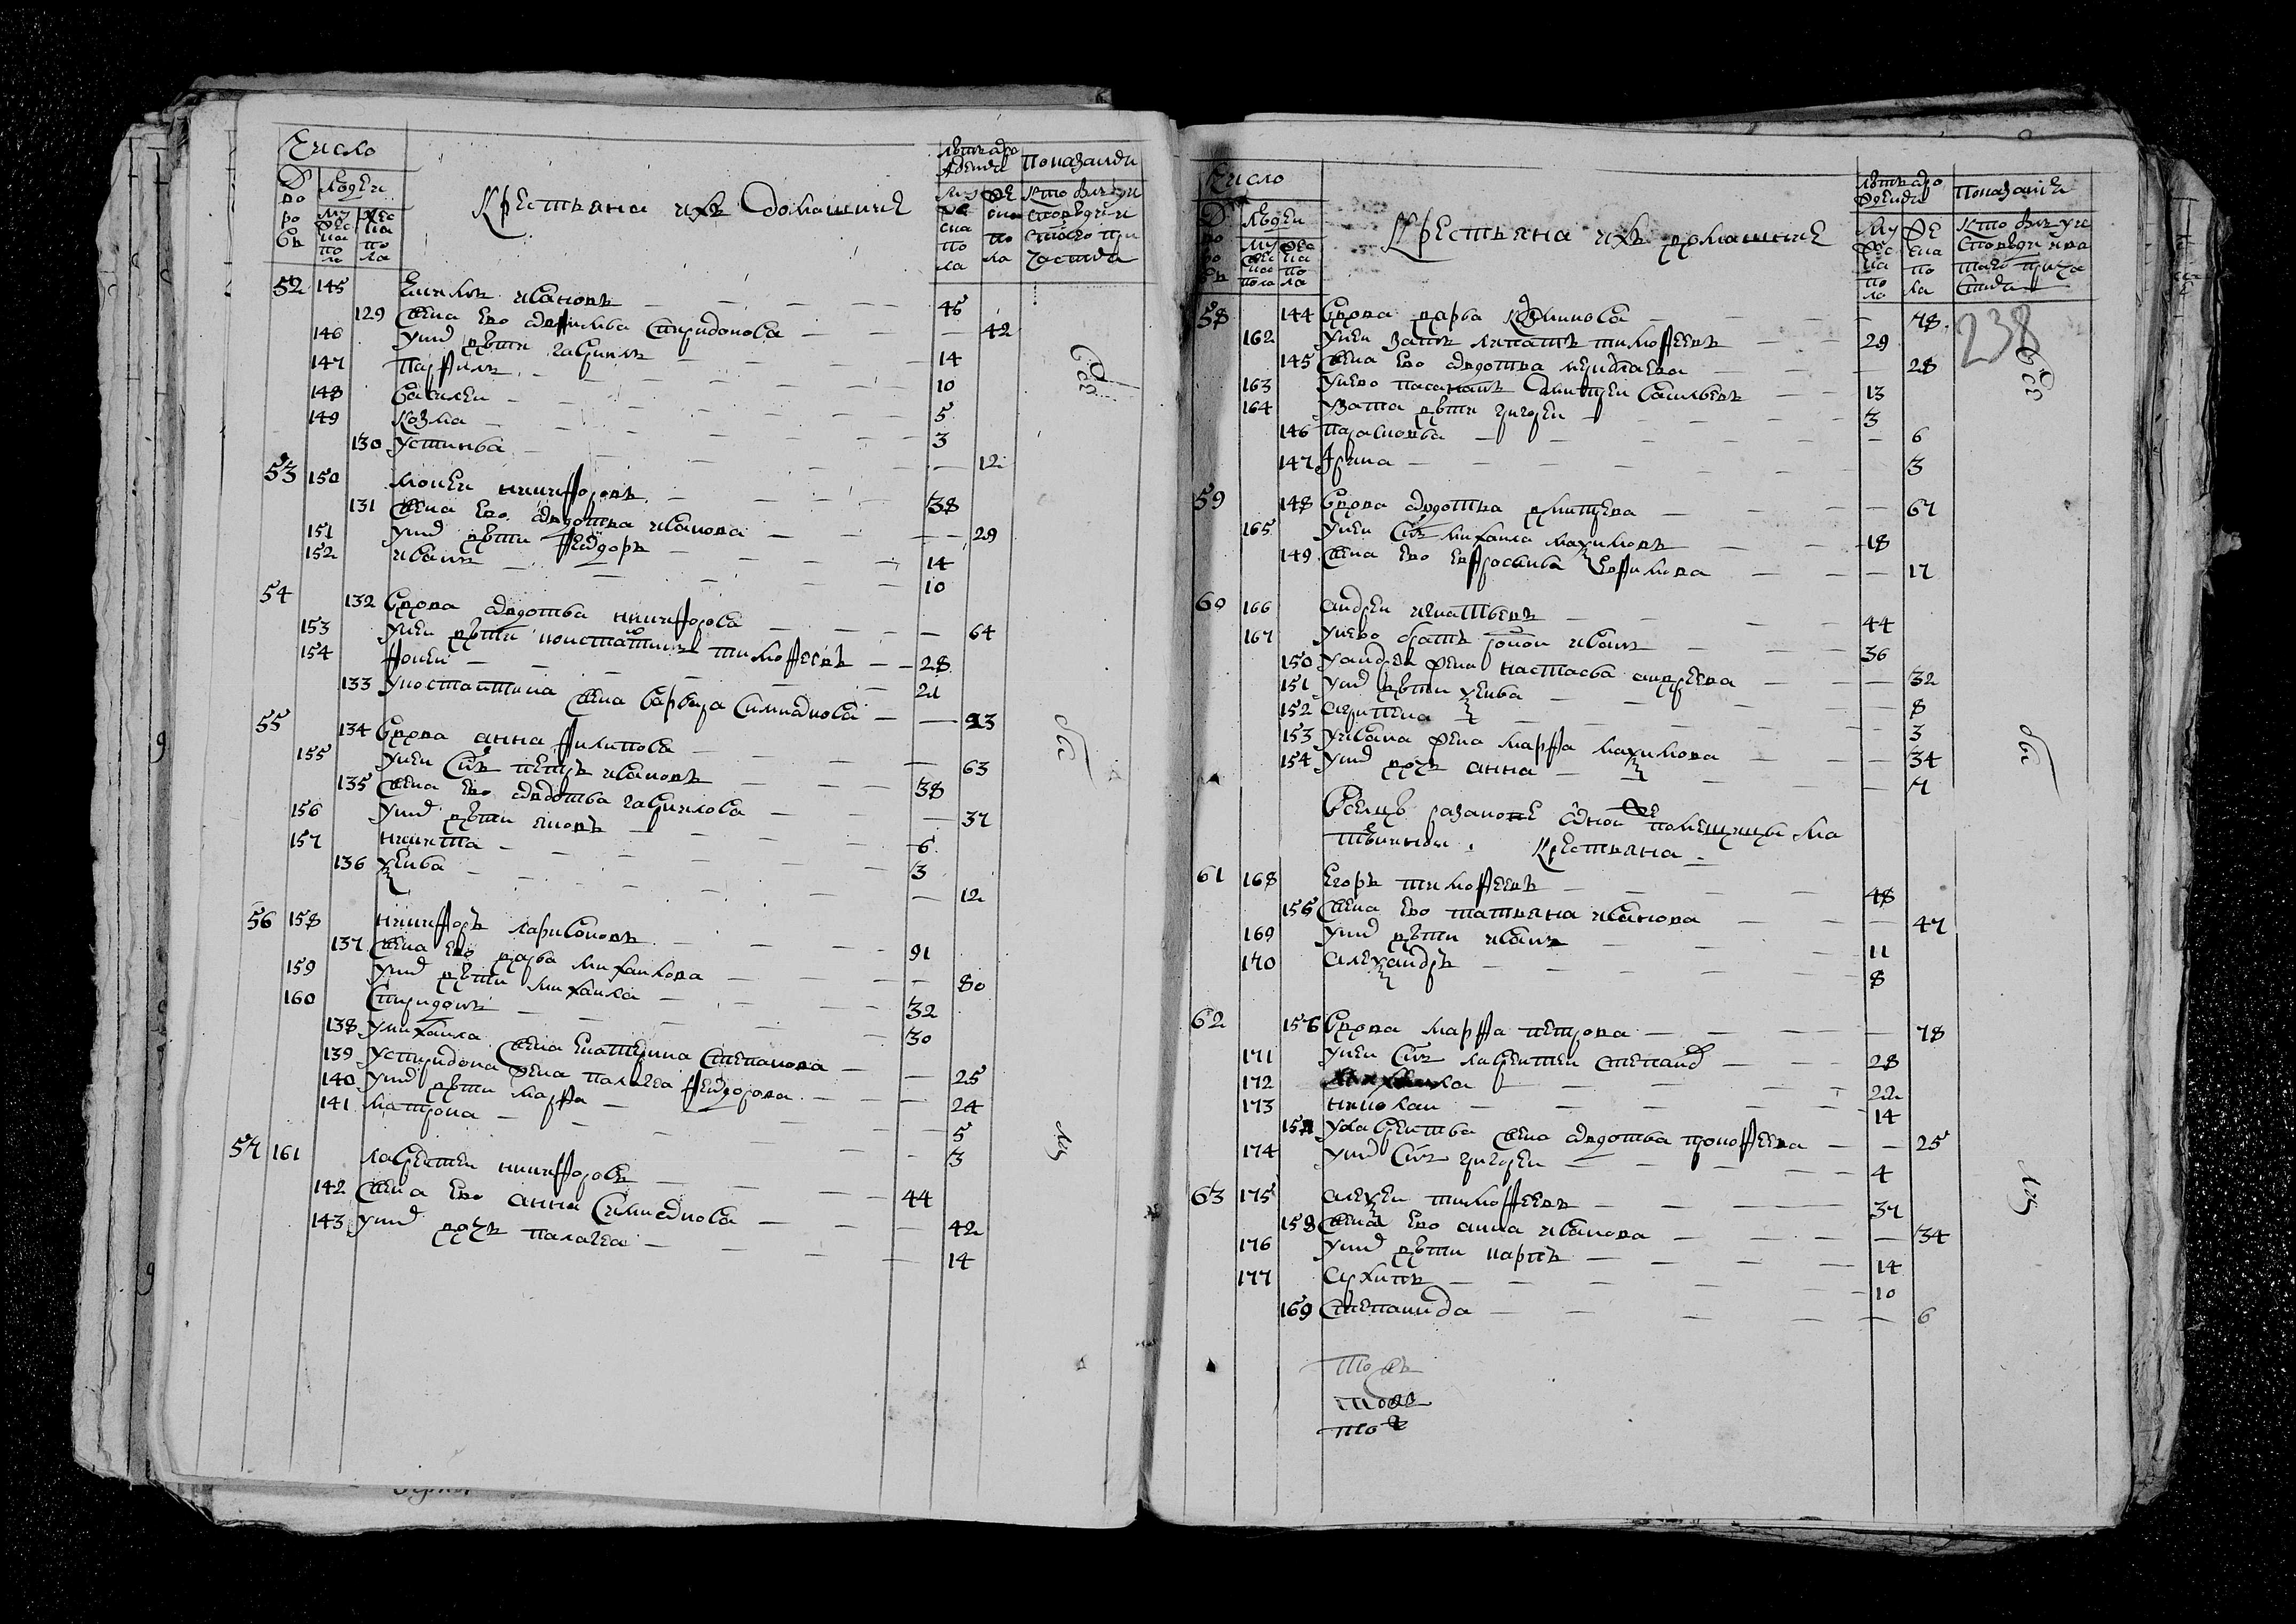 Число
Дворовъ
Людеи
Мужеска пола
Женска пола
Крестьяна ихъ Домашние
Лѣтъ от рождения
Мужеска пола
Женска пола
Показания кто былъ у исповеди и святаго причастия
52 145 Емильянъ Ивановъ — 45
129 Жена ево Афимья Спиридонова — 42
146 У них дѣти Гаврилъ — 14
147 Парфилъ — 10
148 Василеи — 5
149 Козма — 3
130 Устинья — 12
53 150 Мокеи Никифоровъ — 38
131 Жена ево Авдотья Иванова — 29
151 У них дѣти Феиодоръ — 14
152 Иванъ — 10
54 132 Вдова Авдотья Никифорова — 64
153 У неи дѣти Констатинъ Тимофеевъ — 28
154 Фокеи — 21
133 У Костантина Жена Варвара Симионова — 23
55 134 Вдова Анна Филипова — 63
155 У неи Снъ Петръ Ивановъ — 38
135 Жена ево Авдотья Гаврилова — 37
156 У них дѣти Яковъ — 6
157 Никита — 3
136 Ксенья — 12
56 158 Никифоръ Ларивоновъ — 91
137 Жена ево Дарья Михаилова — 80
159 У них дѣти Михаила — 32
160 Спиридонъ — 30
138 У Михаила Жена Екатерина Степанова — 25
139 У Спиридона Жена Палагея Феиодорова — 24
140 У них дѣти Марфа — 5
141 Матрона — 3
57 161 Лаврентеи Никифоровъ — 44
142 Жена ево Анна Симионова — 42
143 У них дочь Палагея — 14
Число
Дворовъ
Людеи
Мужеска пола
Женска пола
Крестьяна ихъ домашние
Лѣтъ от рождения
Мужеска пола
Женска пола
Показание кто былъ у исповеди и святаго причастия
238
58 144 Вдова Дарья — 78
162 У неи Зять Ипатъ Тимофеевъ — 29
145 Жена ево Авдотья — 28
163 У ево Пасанокъ Дмитреи Савельевъ — 13
164 У Зятя дѣти Григореи — 3
146 Парасковья — 6
147 Арина — 3
59 148 Вдова Авдотья Дмитрева — 67
165 У неи Снъ Михаила Максимовъ — 18
149 Жена ево Ефросинья Ефимова — 17
60 166 Андреи Игнатьевъ — 44
167 У ево братъ родной Иванъ — 36
150 У Андрея Жена Настасья Андреева — 32
151 У них дѣти Ксенья — 8
152 Агрипена — 3
153 У Ивана Жена Марфа Максимова — 34
154 У них дочь Анна — 7
Крестьяна
61 168 Егоръ Тимофеевъ — 48
155 Жена ево Татьяна Иванова — 47
169 У них дѣти Иванъ — 11
170 Александръ — 8
62 156 Вдова Марфа Петрова — 78
171 У неи Снъ Лаврентеи Степанов — 28
172 Михаила — 22
173 Николаи — 14
157 У Лаврентья Жена Авдотья Прокофеева — 25
174 У них Снъ Григореи — 4
63 175 Алексеи Тимофеевъ — 37
158 Жена ево Анна Иванова — 34
176 У них дѣти Карпъ — 14
177 Архипъ — 10
169 Степанида — 6